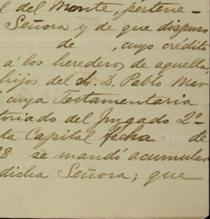 l del Monte, pertene-
Señora y de que dispuso
de , cuyo crédito
á los herederos de aquella
hijos del D. Pablo Mer
cuya Testamentaria
toriado del Juzgado 2º
ta Capital fecha de
8 se mandó acumular
dicha Señora; que